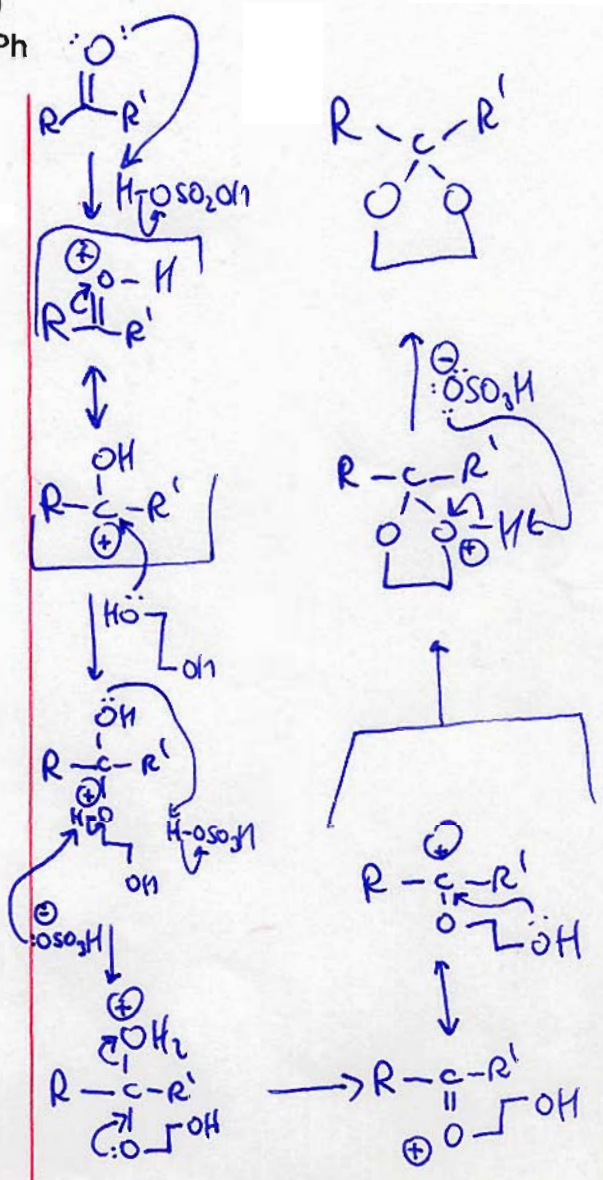 Ph
:O:
R R'
H-OSO₂OH
⊕
O-H
R R'
OH
R-C-R'
⊕
HÖ
OH
ÖH
R-C-R'
⊕
H-O
H-OSO₃H
OH
⊖
:OSO₃H
⊕
OH₂
R-C-R'
:O OH
R-C-R'
⊕ O OH
⊕
R-C-R'
O ÖH
R-C-R'
O O-H
⊕
⊖
:ÖSO₃H
R C R'
O O